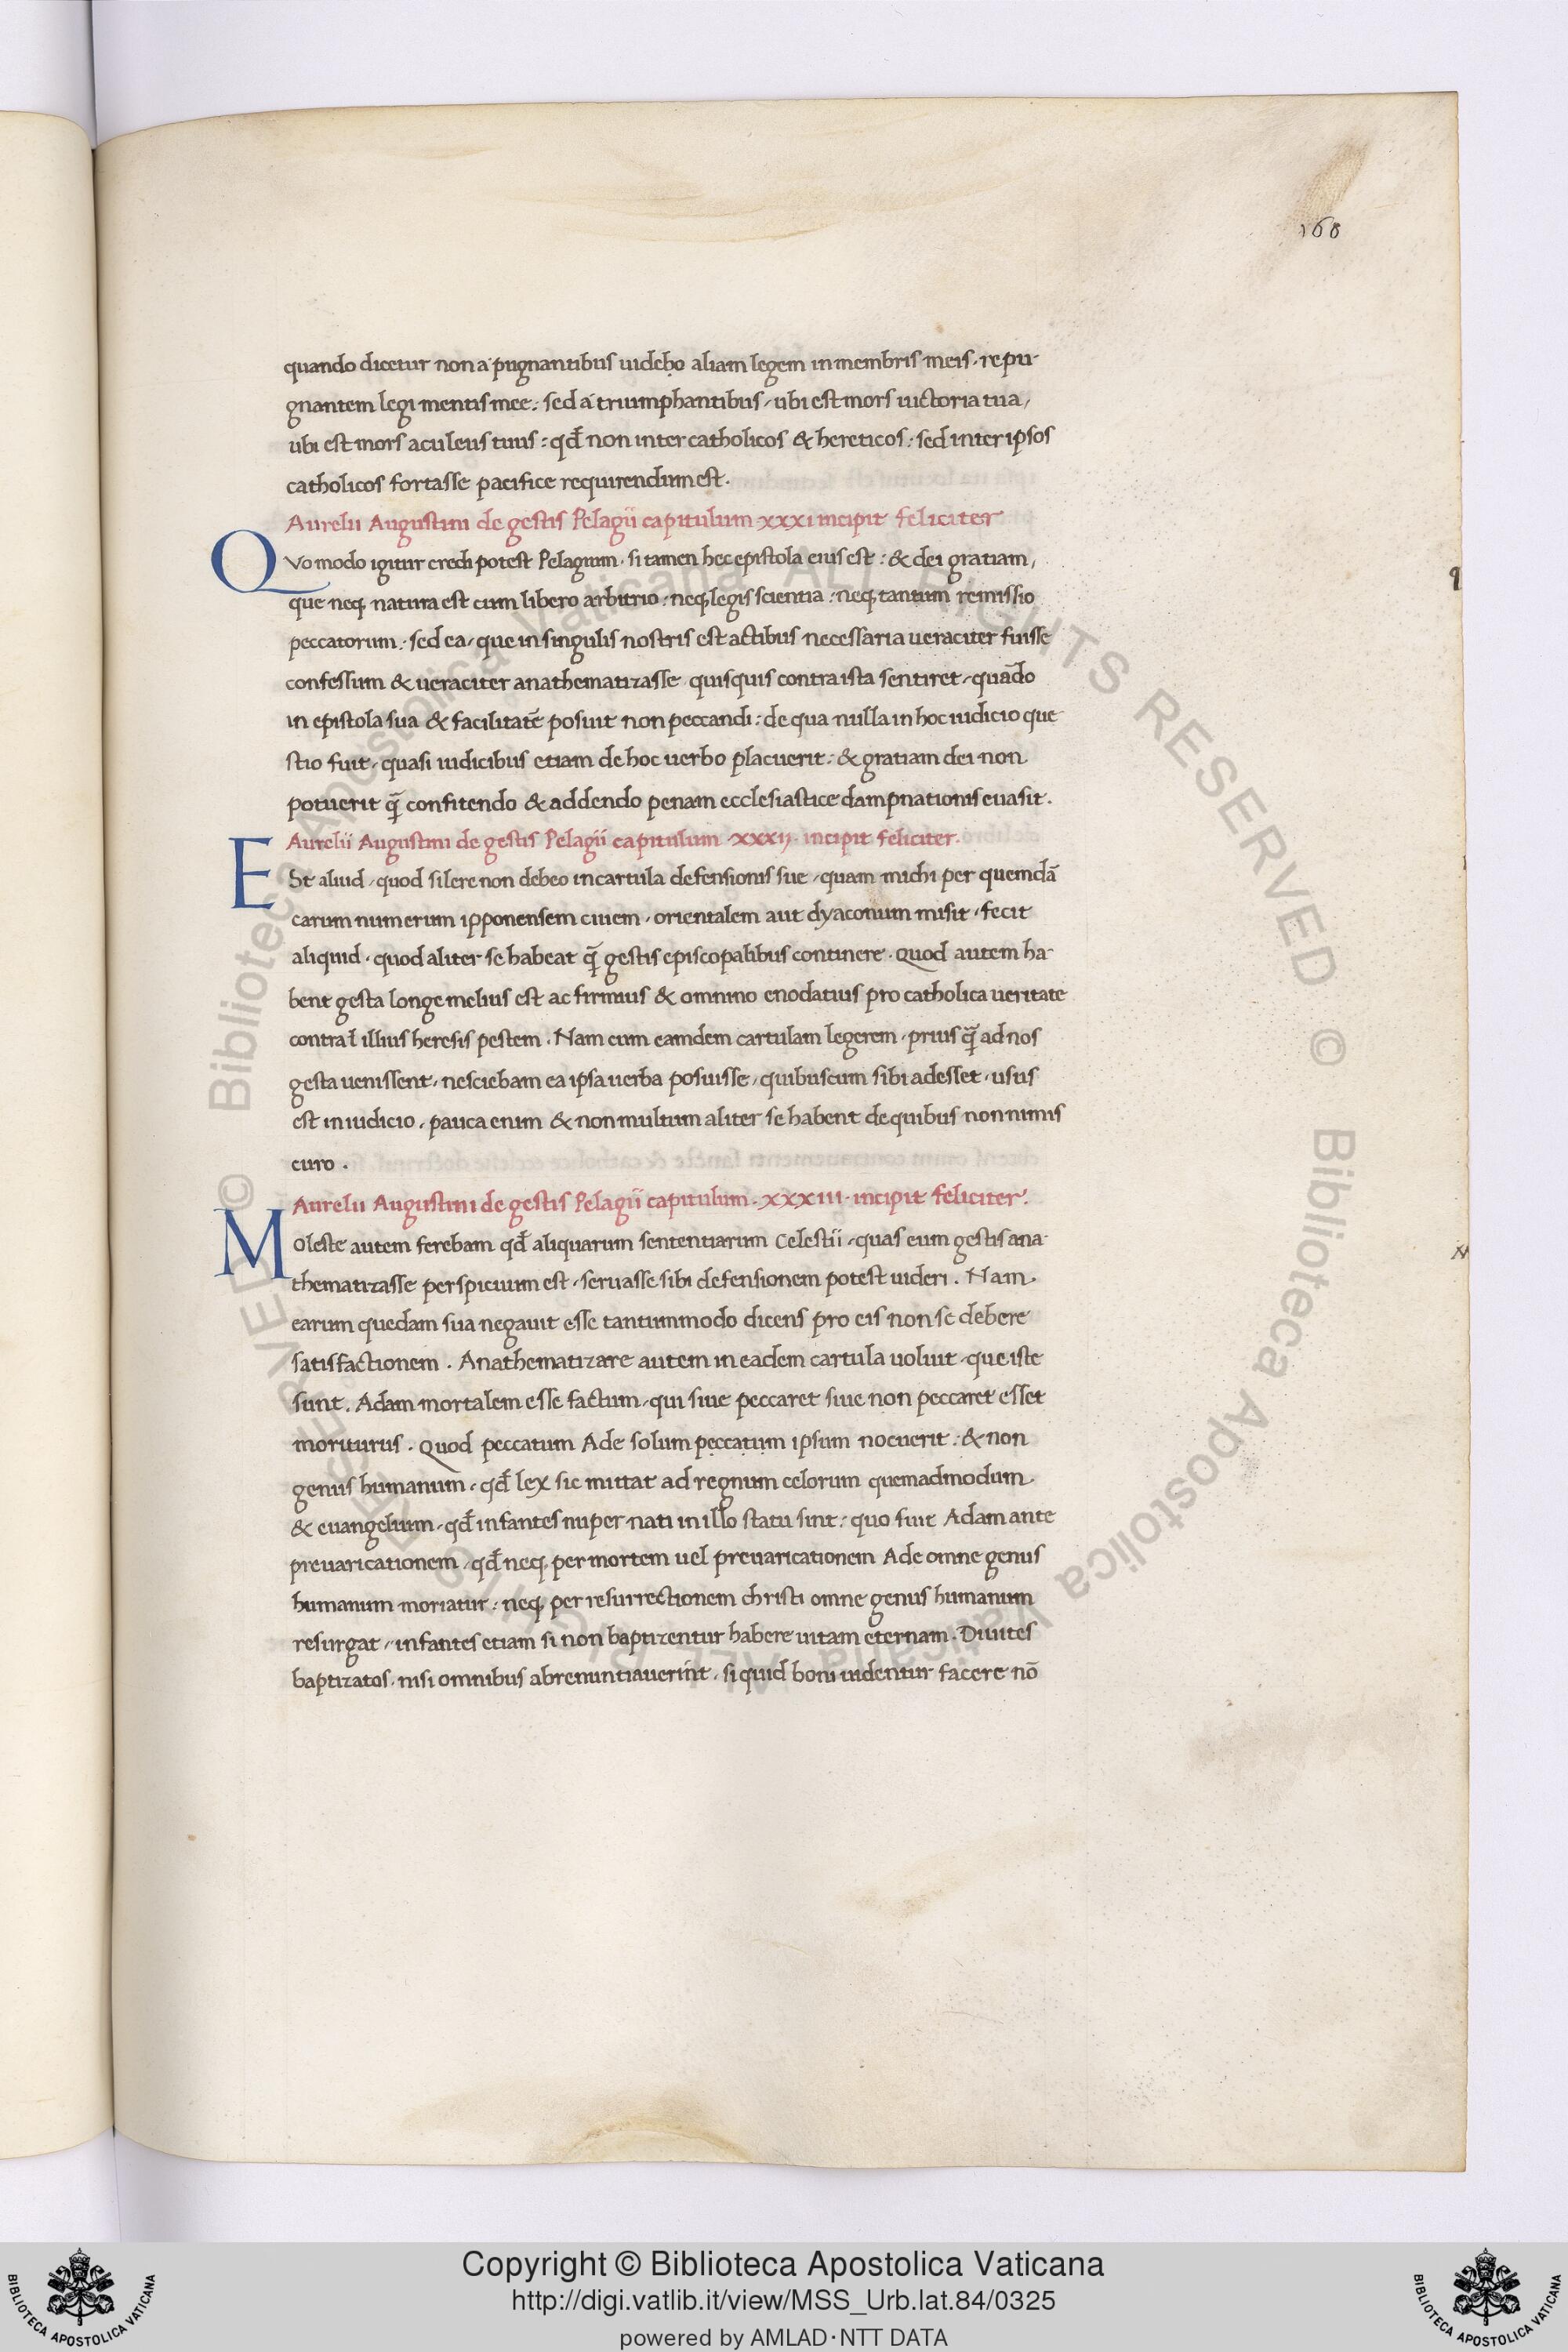 168
quando dicetur non a pugnantibus uidebo aliam legem in membris meis. repu
gnantem legi mentis mee: sed a triumphantibus, ubi est mors uictoria tua,
ubi est mors aculeus tuus: qđ non inter catholicos & hereticos: sed inter ipsos
catholicos fortasse pacifice requirendum est.
Aurelii Augustini de gestis Pelagii capitulum xxxi incipit feliciter
Quo modo igitur credi potest Pelagium. si tamen hec epistola eius est: & dei gratiam,
que neq, natura est cum libero arbitrio: neq, legis scientia: neq, tantum remissio
peccatorum: sed ea, que in singulis nostris est actibus necessaria ueraciter fuisse
confessum & ueraciter anathematizasse quisquis contra ista sentiret, quādo
in epistola sua & facilitatē posuit non peccandi: de qua nulla in hoc iudicio que
stio fuit, quasi iudicibus etiam de hoc uerbo placuerit: & gratiam dei non
potuerit q̄ confitendo & addendo penam ecclesiastice dampnationis euasit.
Aurelii Augustini de gestis Pelagii capitulum .xxxij. incipit feliciter.
ESt aliud, quod silere non debeo in cartula defensionis sue, quam michi per quemdā
carum numerum ipponensem ciuem, orientalem aut dyaconum misit, fecit
aliquid, quod aliter se habeat q̄ gestis episcopalibus continere. Quod autem ha
bent gesta longe melius est ac firmius & omnino enodatius pro catholica ueritate
contra illius heresis pestem. Nam cum eamdem cartulam legerem, prius q̄ ad nos
gesta uenissent, nesciebam ea ipsa uerba posuisse, quibus cum sibi adesset, usus
est in iudicio, pauca enim & non multum aliter se habent de quibus non nimis
curo.
Aurelii Augustini de gestis Pelagii capitulum. xxxiii. incipit feliciter.
Moleste autem ferebam qđ aliquarum sententiarum Celestii, quas eum gestis ana
thematizasse perspicuum est, seruasse sibi defensionem potest uideri. Nam
earum quedam sua negauit esse tantummodo dicens pro eis non se debere
satisfactionem. Anathematizare autem in eadem cartula uoluit, que iste
sunt. Adam mortalem esse factum, qui siue peccaret siue non peccaret esset
moriturus. Quod peccatum Ade solum peccatum ipsum nocuerit: & non
genus humanum, qđ lex sic mittat ad regnum celorum quemadmodum
& euangelium, qđ infantes nuper nati in illo statu sint: quo fuit Adam ante
preuaricationem, qđ neq, per mortem uel preuaricationem Ade omne genus
humanum moriatur: neq, per resurrectionem christi omne genus humanum
resurgat, infantes etiam si non baptizentur habere uitam eternam. Diuites
baptizatos, nisi omnibus abrenuntiauerint, si quid boni uidentur facere nō
© Biblioteca Apostolica Vaticana ALL RIGHTS RESERVED © Biblioteca Apostolica Vaticana ALL RIGHTS RESERVED
BIBLIOTECA APOSTOLICA VATICANA
Copyright © Biblioteca Apostolica Vaticana
http://digi.vatlib.it/view/MSS_Urb.lat.84/0325
powered by AMLAD·NTT DATA
BIBLIOTECA APOSTOLICA VATICANA